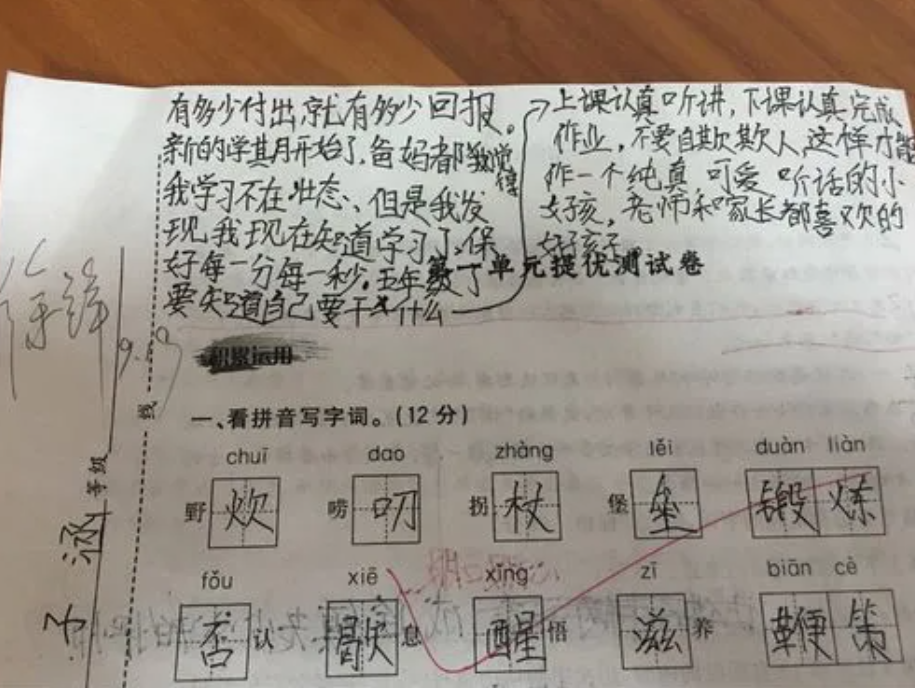 有多少付出就有多少回报。
新的学其月开始了，爸妈都我觉得
我学习不在壮态、但是我发
现，我现在知道学习了，保
好每一分每一秒。五年级了
要知道自己要干什么
上课认真听讲，下课认真完成
作业，不要自欺欺人，这样才能
作一个纯真 可爱 听话的小
好孩，老师和家长都喜欢的
好孩子
第一单元提优测试卷
积累运用
一、看拼音写字词。（12分）
chuī dao zhàng lěi duàn liàn
野炊 唠叨 拐杖 堡垒 锻炼
fǒu xiē xǐng zī biān cè
否认 歇息 醒悟 滋养 鞭策
线
等级
子涵
9.19